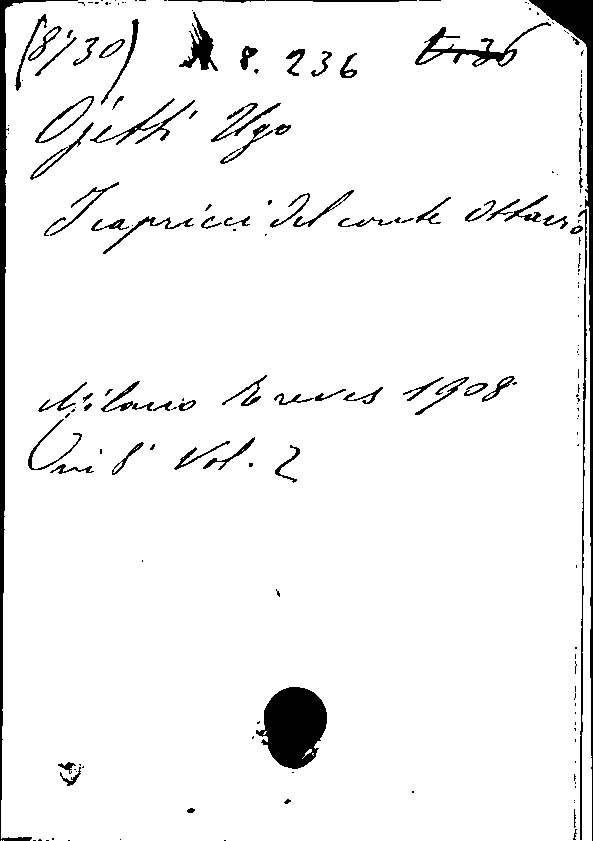 (8'/30) 8. 236
Ojetti Ugo
I capricci del conte Ottavio
Milano Treves 1908
in 8° Vol. 2